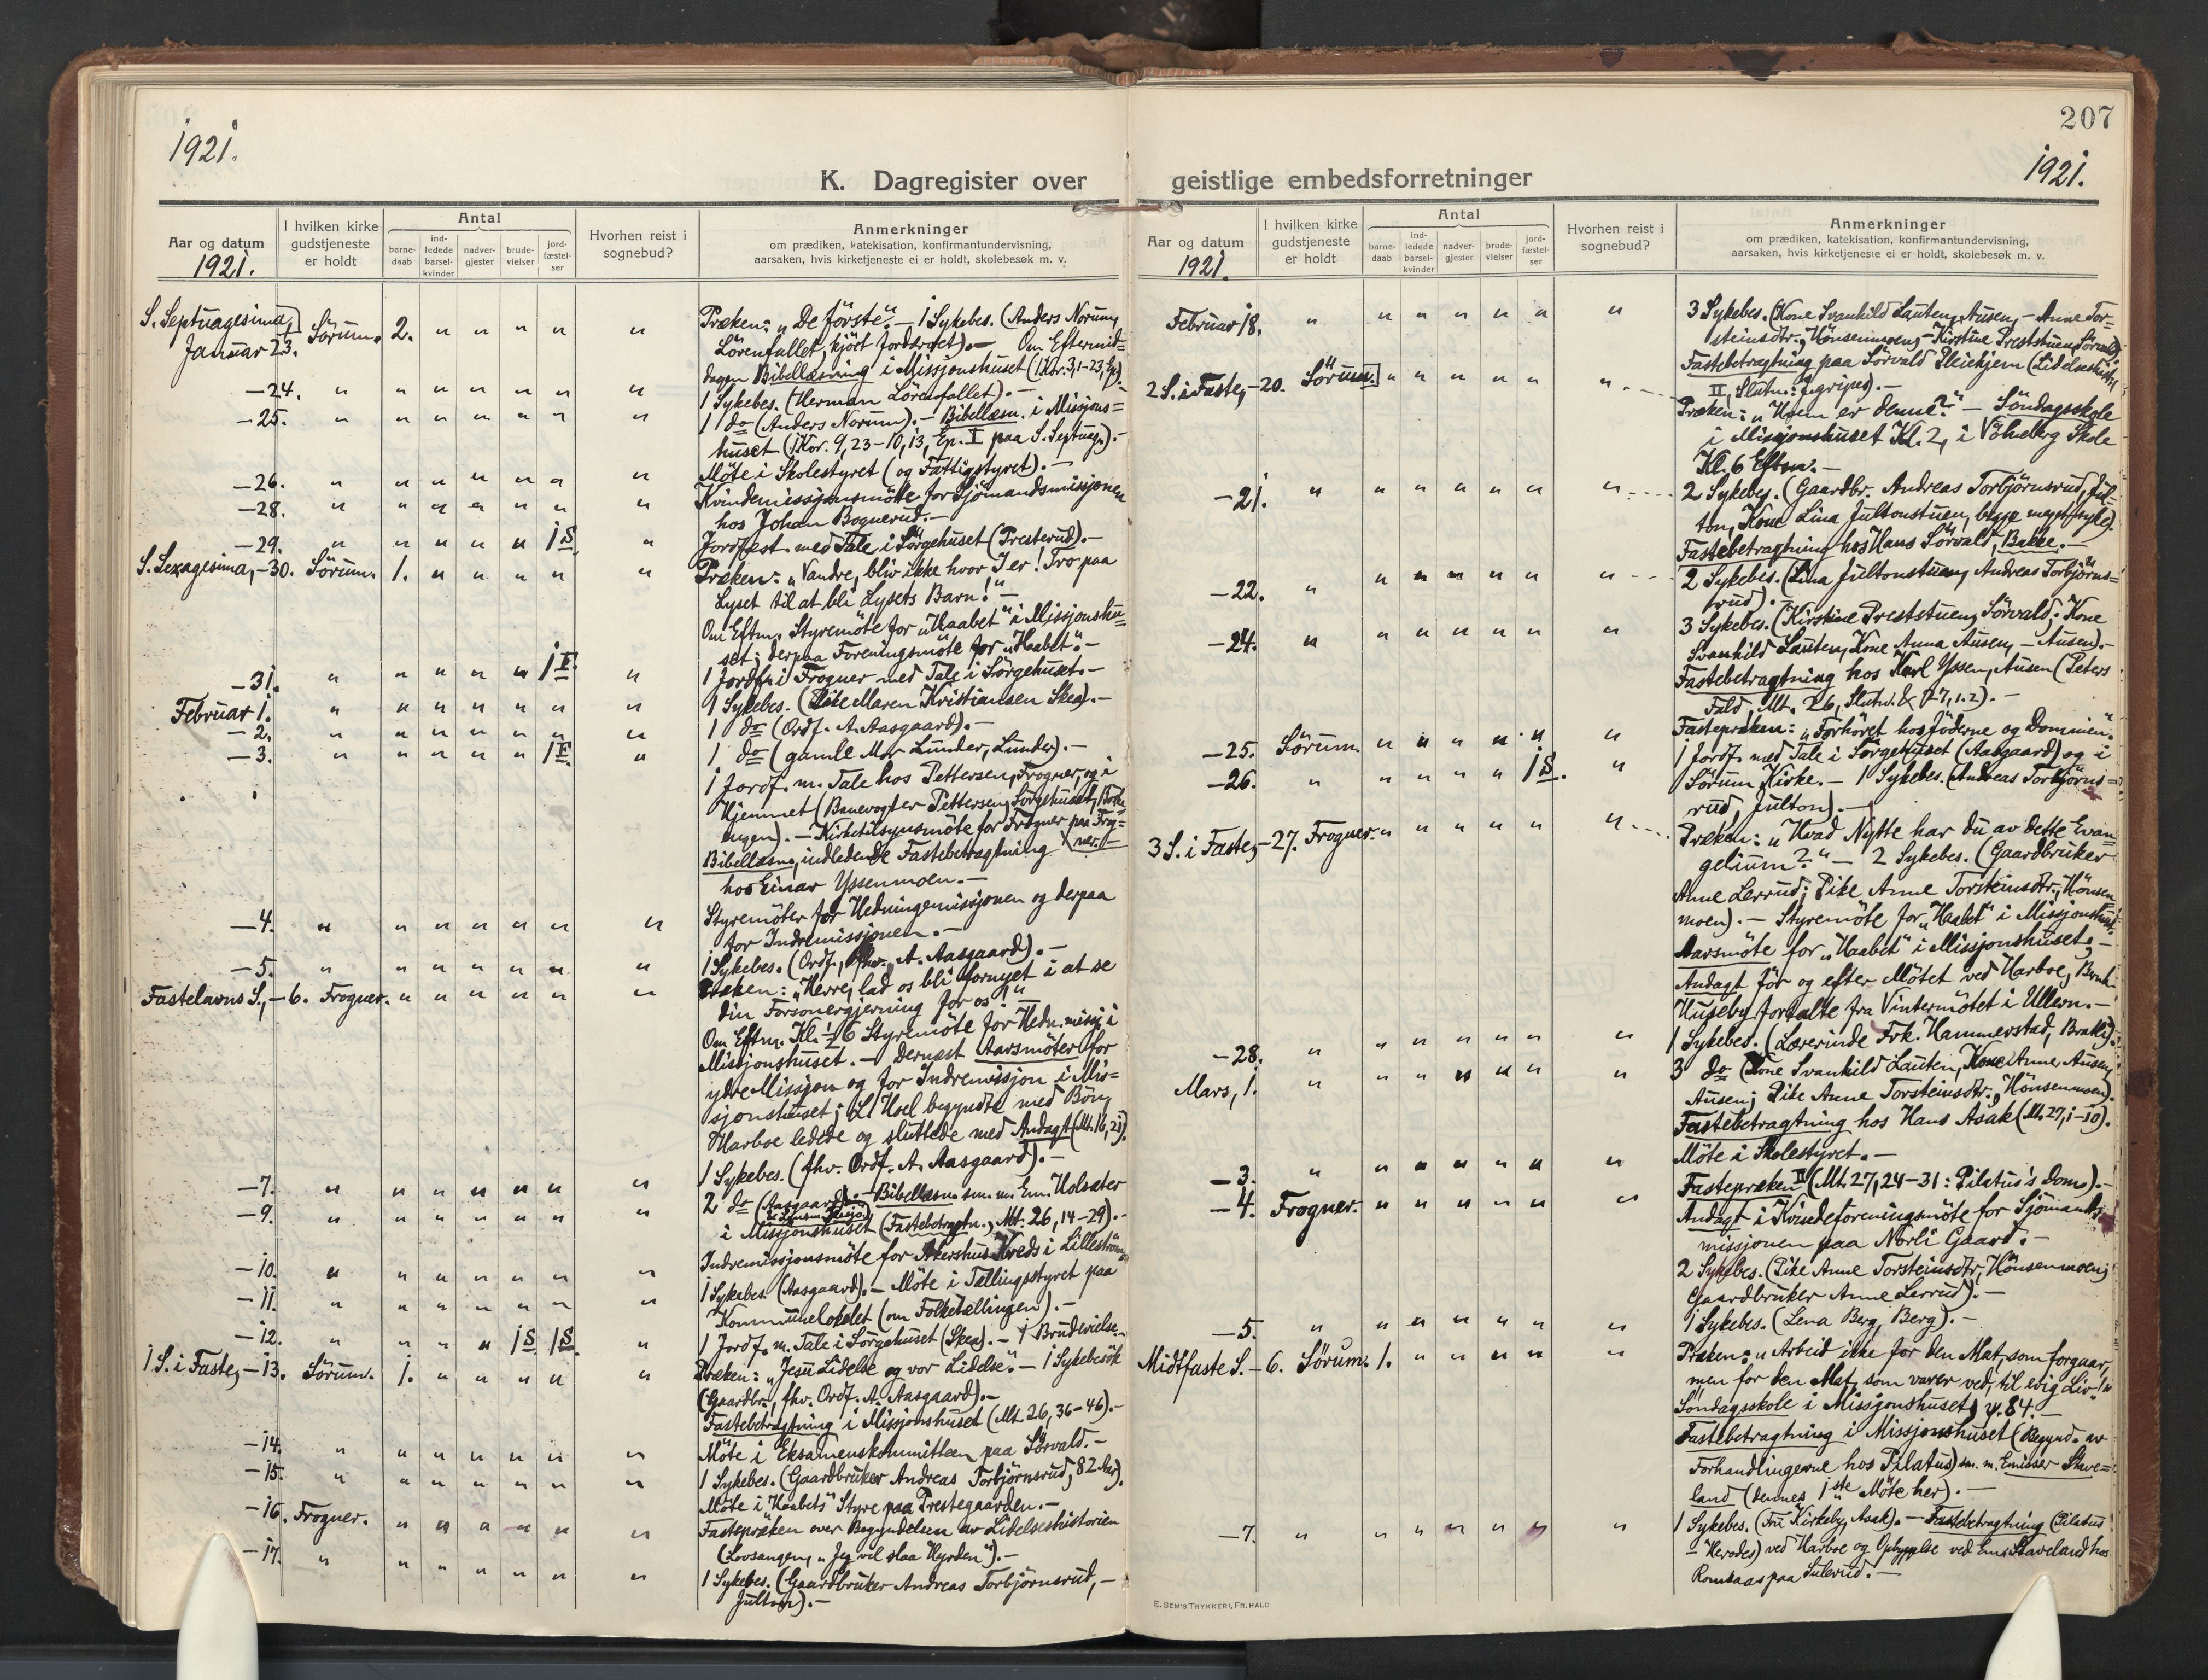 1921.
K. Dagregister over
Aar og datum
1921.
I hvilken kirke
gudstjeneste
er holdt
Antal
barne-
daab
ind-
ledede
barsel-
kvinder
nadver-
gjester
brude-
vielser
jord-
fæstel-
ser
Hvorhen reist i
sognebud?
Anmerkninger
om prædiken, katekisation, konfirmantundervisning,
aarsaken, hvis kirketjeneste ei er holdt, skolebesøk m. v.
S. Septuagesima,
Januar 23. Sörum. 2. " " " " "
Præken: „De förste". – 1 Sykebes. (Anders Norum,
Lörenfallet, kjört fordærvet). – Om Eftermid=
dagen Bibellæsning i Missjonshuset (1 Kor. 3, 1-23, Ep.)
–24. " " " " " " " 1 Sykebes. (Herman Lörenfallet). –
–25. " " " " " " " 1 do (Anders Norum). – Bibellæsn. i Missjons=
huset (1 Kor. 9, 23–10, 13, Ep. I paa S. Septuag.). –
–26. " " " " " " " Möte i Skolestyret (og Fattigstyret). –
–28. " " " " " " " Kvindemissjonsmöte for Sjömandsmissjonen
hos Johan Bognerud. –
–29. " " " " " 1 S. " Jordfest. med Tale i Sörgehuset (Presterud). –
S. Sexagesima, –30. Sörum. 1. " " " " " Præken: „Vandre, bliv ikke hvor I er! Tro paa
Lyset til at bli Lysets Barn!" –
Om Eftm. Styremöte for „Haabet" i Missjonshu=
set; derpaa Foreningsmöte for „Haabet". –
–31. " " " " " 1 F. " 1 Jordf. i Frogner med Tale i Sörgehuset. –
Februar 1. " " " " " " " 1 Sykebes. (Pike Maren Kristiansen Skea). –
–2. " " " " " " " 1 do (Ordf. A. Aasgaard). –
–3. " " " " " 1 F. " 1 do (gamle Mor Lunder, Lunder). –
1 Jordf. m. Tale hos Pettersen, Frogner, og i
Hjemmet (Banevogter Pettersen, Sörgehuset,
– Kirketilsynsmöte for Frogner paa Frog=
ner. –
Bibellæsn., indledende Fastebetragtning
hos Einar Yssenmoen. –
–4. " " " " " " " Styremöter for Hedningemissjonen og derpaa
for Indremissjonen. –
–5. " " " " " " " 1 Sykebes. (Ordf., fhv., A. Aasgaard). –
Fastelavns S., –6. Frogner. " " " " " " Præken: „Herre, lad os bli fornyet i at se
din Forsonergjerning for os!" –
Om Eftm. Kl. ½6 Styremöte for Hedn.missj. i
Missjonshuset. – Dernæst Aarsmöter for
ydre Missjon og for Indremissjon i Mis=
sjonshuset; L. Hoel begyndte med Bön,
Harboe ledede og sluttede med Andagt (Mt. 16, 21).
–7. " " " " " " " 1 Sykebes. (fhv. Ordf. A. Aasgaard). –
–9. " " " " " " " 2 do (Aasgaard). – Bibellæsn. sm. m. Em. Holsæter
i Missjonshuset (Fastebetragtn., Mt. 26, 14–29). –
–10. " " " " " " " Indremissjonsmöte for Akershus Kreds i Lilleström
–11. " " " " " " " 1 Sykebes. (Aasgaard). – Möte i Tællingsstyret paa
Kommunelokalet (om Folketællingen). –
–12. " " " " 1 S. 1 S. " 1 Jordf. m. Tale i Sörgehuset (Skea). – 1 Brudevielse. –
1 S. i Faste, –13. Sörum. 1. " " " " " Præken: „Jesu Lidelse og vor Lidelse". – 1 Sykebesök
(Gaardbr., fhv. Ordf. A. Aasgaard). –
Fastebetragtning i Missjonshuset (Mt. 26, 36–46). –
–14. " " " " " " " Möte i Eksamenskommitteen paa Sörvald. –
–15. " " " " " " " 1 Sykebes. (Gaardbruker Andreas Torbjörnsrud, 82 Aar).
Möte i „Haabets" Styre paa Prestegaarden. –
–16. Frogner. " " " " " " Fastepræken over Begyndelsen av Lidelseshistorien
(Lovsangen, „Jeg vil slaa Hyrden"). –
–17. " " " " " " " 1 Sykebes. (Gaardbruker Andreas Torbjörnsrud, –
Julton). –
207
1921.
geistlige embedsforretninger
Aar og datum
1921.
I hvilken kirke
gudstjeneste
er holdt
Antal
barne-
daab
ind-
ledede
barsel-
kvinder
nadver-
gjester
brude-
vielser
jord-
fæstel-
ser
Hvorhen reist i
sognebud?
Anmerkninger
om prædiken, katekisation, konfirmantundervisning,
aarsaken, hvis kirketjeneste ei er holdt, skolebesøk m. v.
Februar 18. " " " " " " " 3 Sykebes. (Kone Svanhild Lauten, Ausen, – Anne Tor=
steinsdtr., Hönsenmoen, – Kirstine Preststuen, Sörvald).
Fastebetragtning paa Sörvald Pleiehjem (Lidelseshist.
II, Slutn.: gripes). –
2 S. i Faste, –20. Sörum. " " " " " " Præken: „Hvem er denne?" – Söndagsskole
i Missjonshuset Kl. 2, i Völneberg Skole
Kl. 6 Eftm. –
–21. " " " " " " " 2 Sykebes. (Gaardbr. Andreas Torbjörnsrud, Jul-
ton, Kone Lina Jultonstuen, begge meget syke).
Fastebetragtning hos Hans Sörvald, Bakke. –
–22. " " " " " " " 2 Sykebes. (Lina Jultonstuen, Andreas Torbjörns=
rud). –
–24. " " " " " " " 3 Sykebes. (Kirstine Preststuen, Sörvald; Kone
Svanhild Lauten, Kone Anna Ausen, – Ausen). –
Fastebetragtning hos Karl Yssen, Ausen (Peters
Fald, Mt. 26, Slutn. & 27, 1.2). –
–25. Sörum. " " " " " " Fastepræken: „Forhöret hos Jöderne og Dommen".
–26. " " " " " 1 S. " 1 Jordf. med Tale i Sörgehuset (Aasgaard) og i
Sörum Kirke. – 1 Sykebes. (Andreas Torbjörns=
rud, Julton). –
3 S. i Faste, –27. Frogner. " " " " " " Præken: „Hvad Nytte har du av dette Evan=
gelium?" – 2 Sykebes. (Gaardbruker
Anne Lerrud; Pike Anne Torsteinsdtr., Hönsen=
moen). – Styremöte for „Haabet" i Missjonshuset.
Aarsmöte for „Haabet" i Missjonshuset, –
Andagt för og efter Mötet ved Harboe,
Huseby fortalte fra Vintermötet i Ullern. –
–28. " " " " " " " 1 Sykebes. (Lærerinde Frk. Hammerstad,
Mars, 1. " " " " " " " 3 do (Kone Svanhild Lauten, Kone Anne Ausen,
Ausen; Pike Anne Torsteinsdtr., Hönsenmoen).
Fastebetragtning hos Hans Asak (Mt. 27, 1–10).
–3. " " " " " " " Möte i Skolestyret. –
–4. Frogner. " " " " " " Fastepræken IV (Mt. 27, 24–31: Pilatus's Dom). –
Andagt i Kvindeforeningsmöte for Sjömands=
missjonen paa Norli Gaard. –
2 Sykebes. (Pike Anne Torsteinsdtr., Hönsenmoen;
Gaardbruker Anne Lerrud). –
–5. " " " " " " " 1 Sykebes. (Lena Berg, Berg). –
Midtfaste S. –6. Sörum. 1. " " " " " Præken: „Arbeid ikke for den Mat, som forgaar,
men for den Mat, som varer ved, til evig Liv!"
Söndagsskole i Missjonshuset, ψ. 84. –
Fastebetragtning i Missjonshuset (Begynd. av
Forhandlingerne hos Pilatus) sm. m. Emissær Stave=
land (dennes 1ste Möte her). –
–7. " " " " " " " 1 Sykebes. (Fru Kirkeby, Asak). – Fastebetragtning (Pilatus
– Herodes) ved Harboe og Opbyggelse ved Em. Staveland hos
Romsaas paa Sulerud. –
E. SEM'S TRYKKERI, FR.HALD